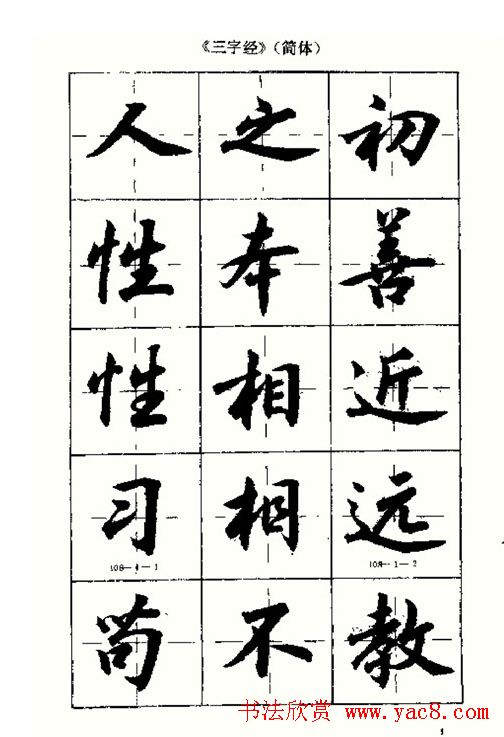 《三字经》(简体)
人之初
性本善
性相近
习相远
108-1-1 108-1-2
苟不教
书法欣赏 www.yac8.com
1